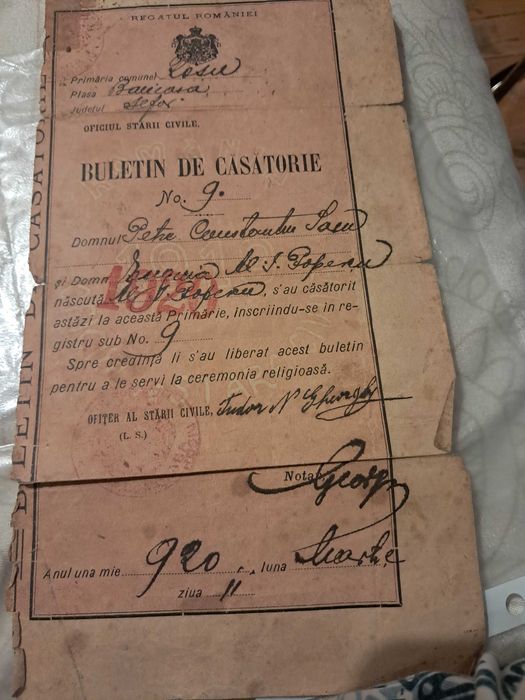 REGATUL ROMÂNIEI
Primăria comunei Roșu
Plasa Băneasa
Județul Ilfov
OFICIUL STĂRII CIVILE,
BULETIN DE CĂSĂTORIE
No. 9.
Domnul Petre Constantin
și Domn M. I. Popescu
născută M. I. Popescu, s'au căsătorit
astăzi la această Primărie, înscriindu-se in re-
gistru sub No. 9
Spre credință li s'au liberat acest buletin
pentru a le servi la ceremonia religioasă.
OFIȚER AL STĂRII CIVILE, Tudor N. Gheorghe
(L. S.)
Nota
Anul una mie 920 luna Martie
ziua 11
BULETIN DE CĂSĂTORIE